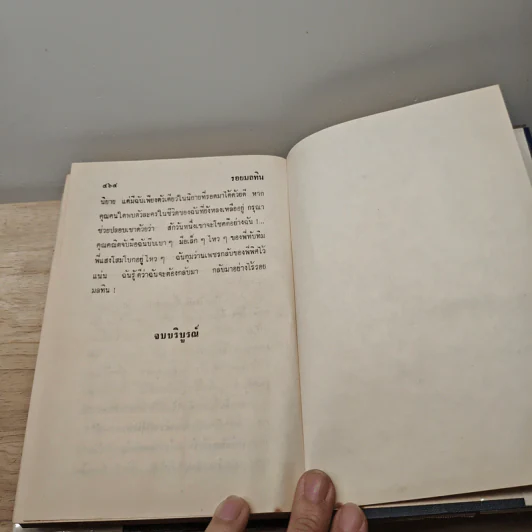 ๔๖๔ รอยมลทิน
นิยาย แต่มีฉันเพียงตัวเดียวในนิกายที่รอดมาได้ด้วยดี หาก
คุณคนใดพบตัวละครในชีวิตของฉันที่ยังหลงเหลืออยู่ กรุณา
ช่วยปลอบเขาด้วยว่า สักวันหนึ่งเขาจะโชคดีอย่างฉัน !...
คุณคณิตจับมือฉันบีบเบา ๆ มือเล็ก ๆ ไหว ๆ ของพี่ทับทิม
พี่แสงโสมโบกอยู่ไหว ๆ ฉันกุมร่วนเพชรกลับของพี่พิศไว้
แน่น ฉันรู้ดีว่าฉันจะต้องกลับมา กลับมาอย่างไร้รอย
มลทิน !
จบบริบูรณ์